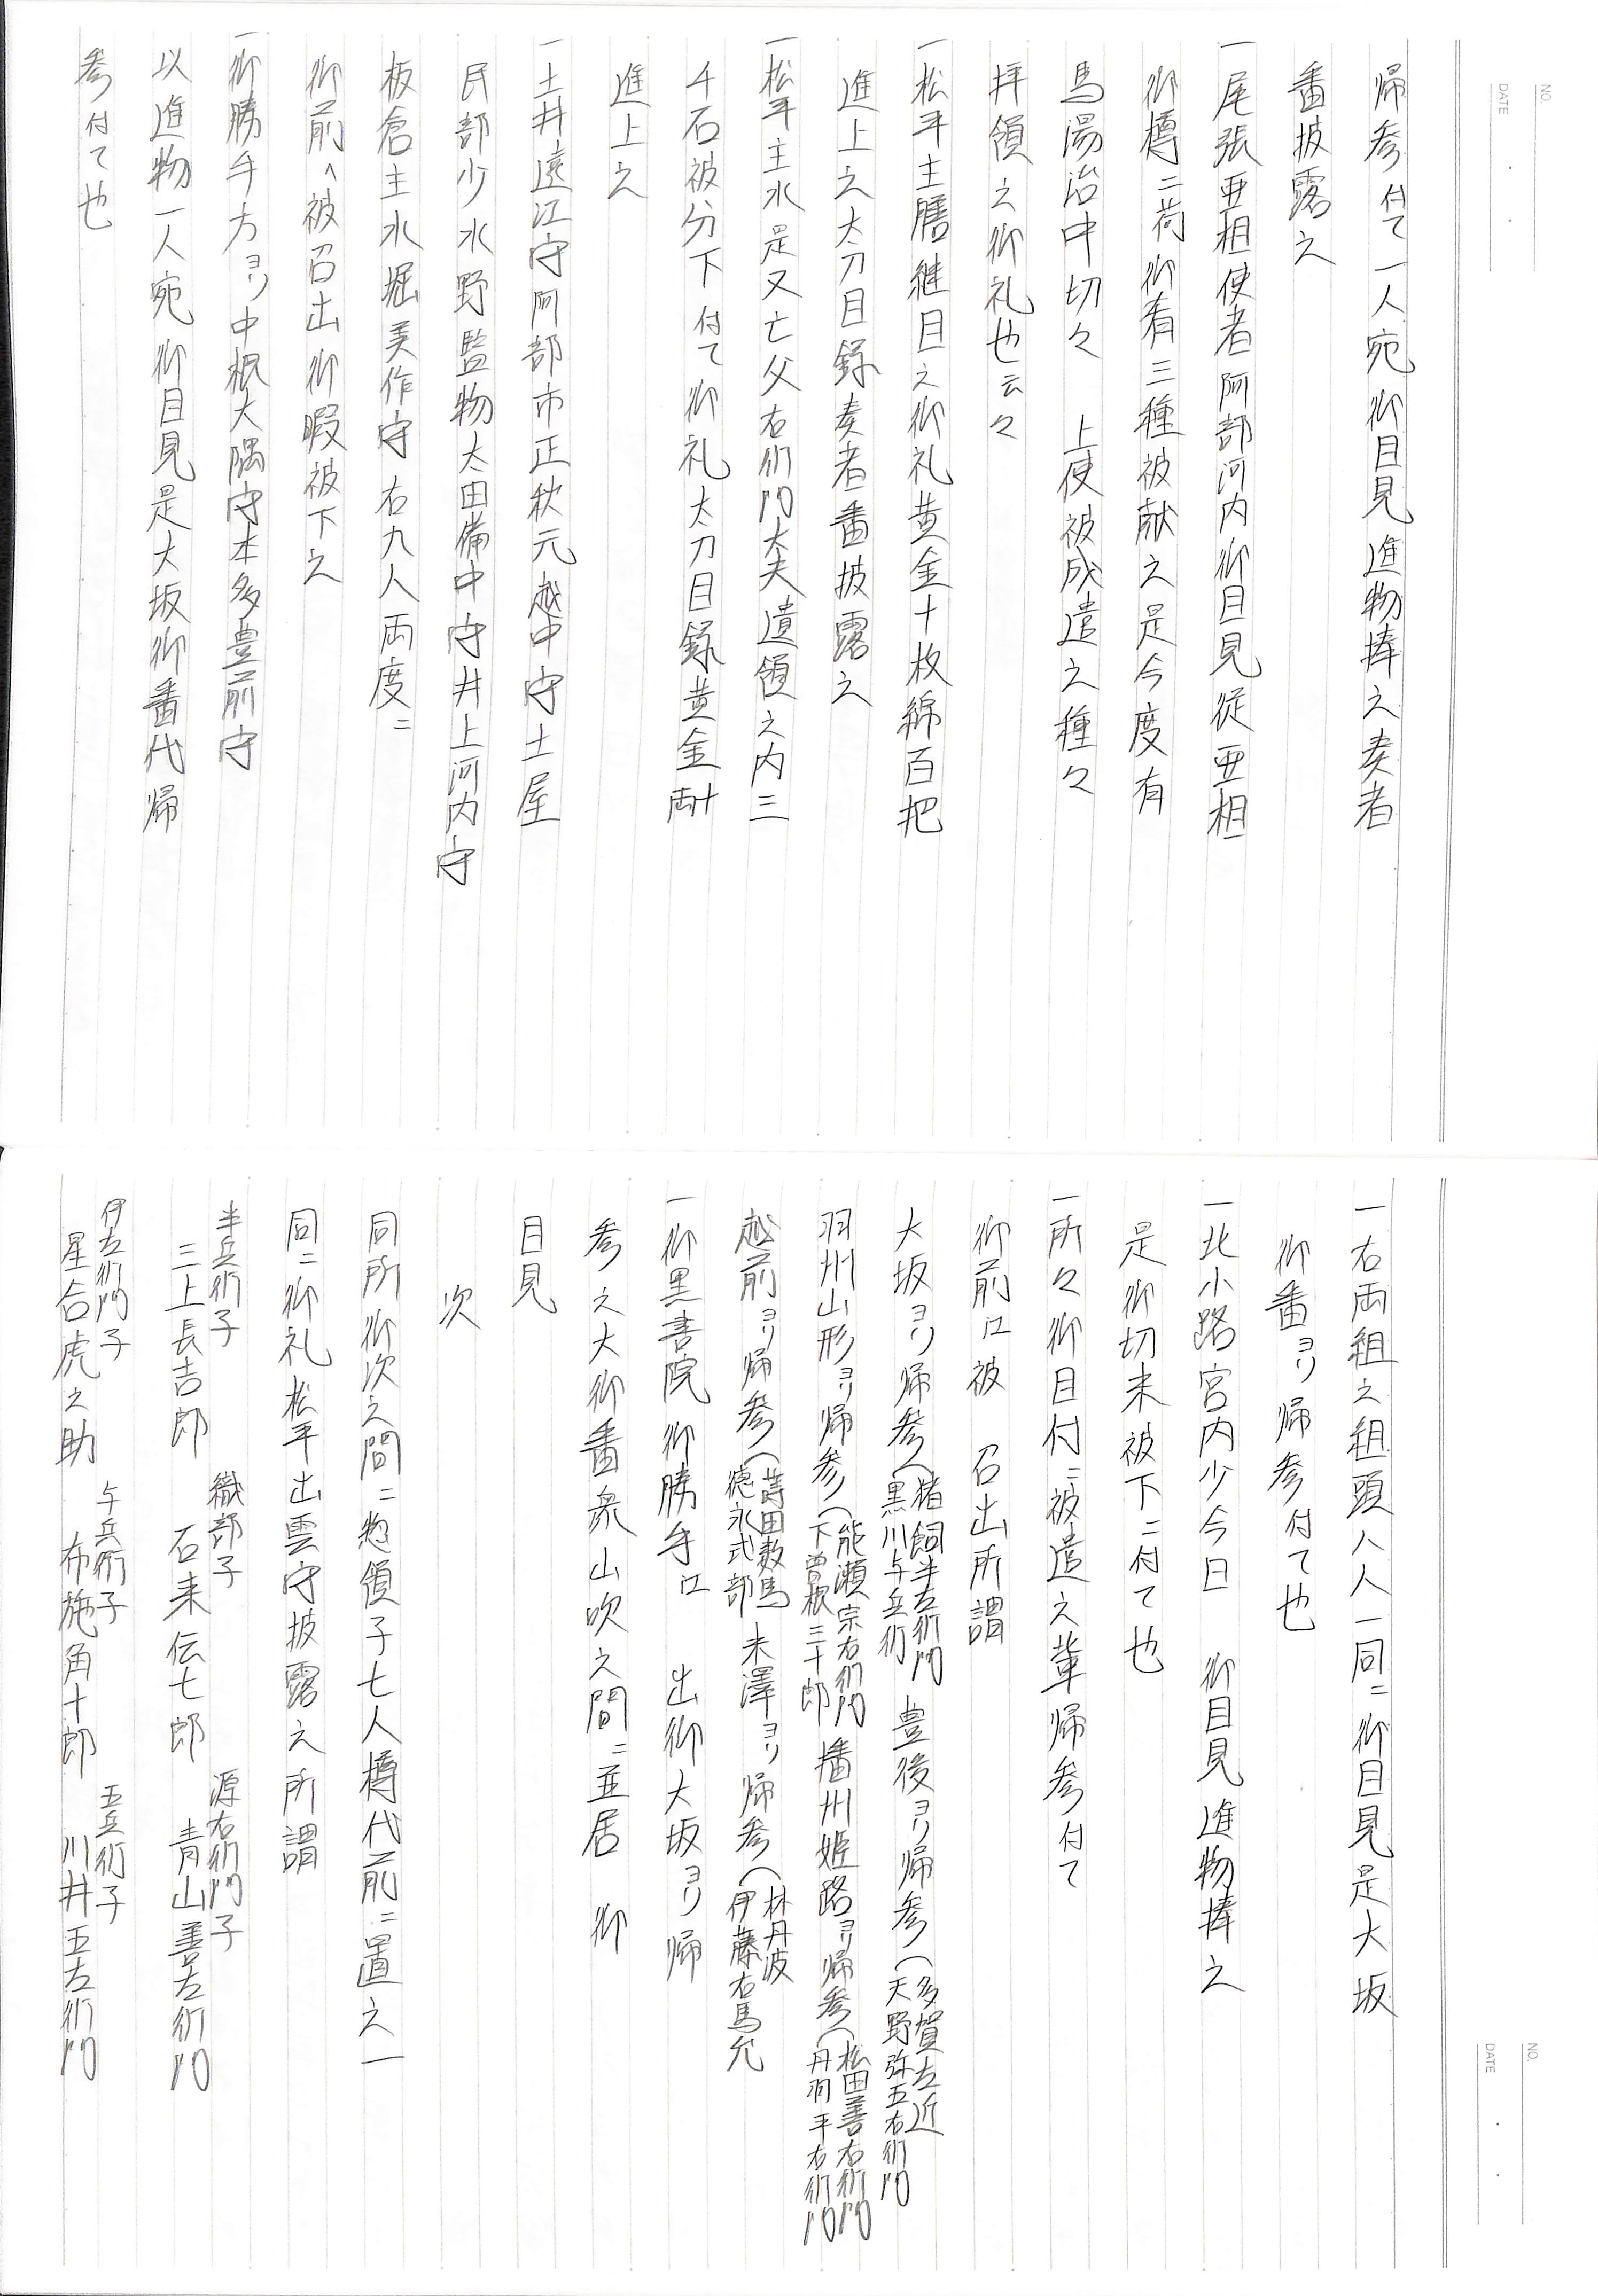 NO.
DATE
帰参付て一人宛御目見進物捧之奏者
番披露之
一尾張亜相使者阿部河内御目見従亜相
御樽二荷御肴三種被献之是今度有
馬湯治中切々　上使被成遣之種々
拝領之御礼也云々
一松平主膳継目之御礼黄金十枚綿百把
進上之太刀目録奏者番披露之
一松平主水是又亡父右衛門大夫遺領之内三
千石被分下付て御礼太刀目録黄金十両
進上之
一土井遠江守阿部市正秋元越中守土屋
民部少水野監物太田備中守井上河内守
板倉主水堀美作守右九人両度ニ
御前へ被召出御暇被下之
一御勝手方ヨリ中根大隅守本多豊前守
以進物一人宛御目見是大坂御番代帰
参付て也
NO.
DATE
一右両組之組頭八人一同ニ御目見是大坂
御番ヨリ帰参付て也
一北小路宮内少今日　御目見進物捧之
是御切米被下ニ付て也
一所々御目付ニ被遣之輩帰参付て
御前江被　召出所謂
大坂ヨリ帰参（猪飼半左衛門 黒川与兵衛　豊後ヨリ帰参（多賀左近 天野弥五右衛門
羽州山形ヨリ帰参（能瀬宗右衛門 下曽根三十郎　播州姫路ヨリ帰参（松田善右衛門 丹羽平右衛門
越前ヨリ帰参（蒔田数馬 徳永式部　米澤ヨリ帰参（林丹波 伊藤右馬允
一御黒書院御勝手江　出御大坂ヨリ帰
参之大御番衆山吹之間ニ並居　御
目見
次
同所御次之間ニ惣領子七人樽代前ニ置之一
同ニ御礼松平出雲守披露之所謂
半兵衛子　織部子　源右衛門子
三上長吉郎　石来伝七郎　青山善左衛門
伊左衛門子　与兵衛子　五兵衛子
星合虎之助　布施角十郎　川井五左衛門